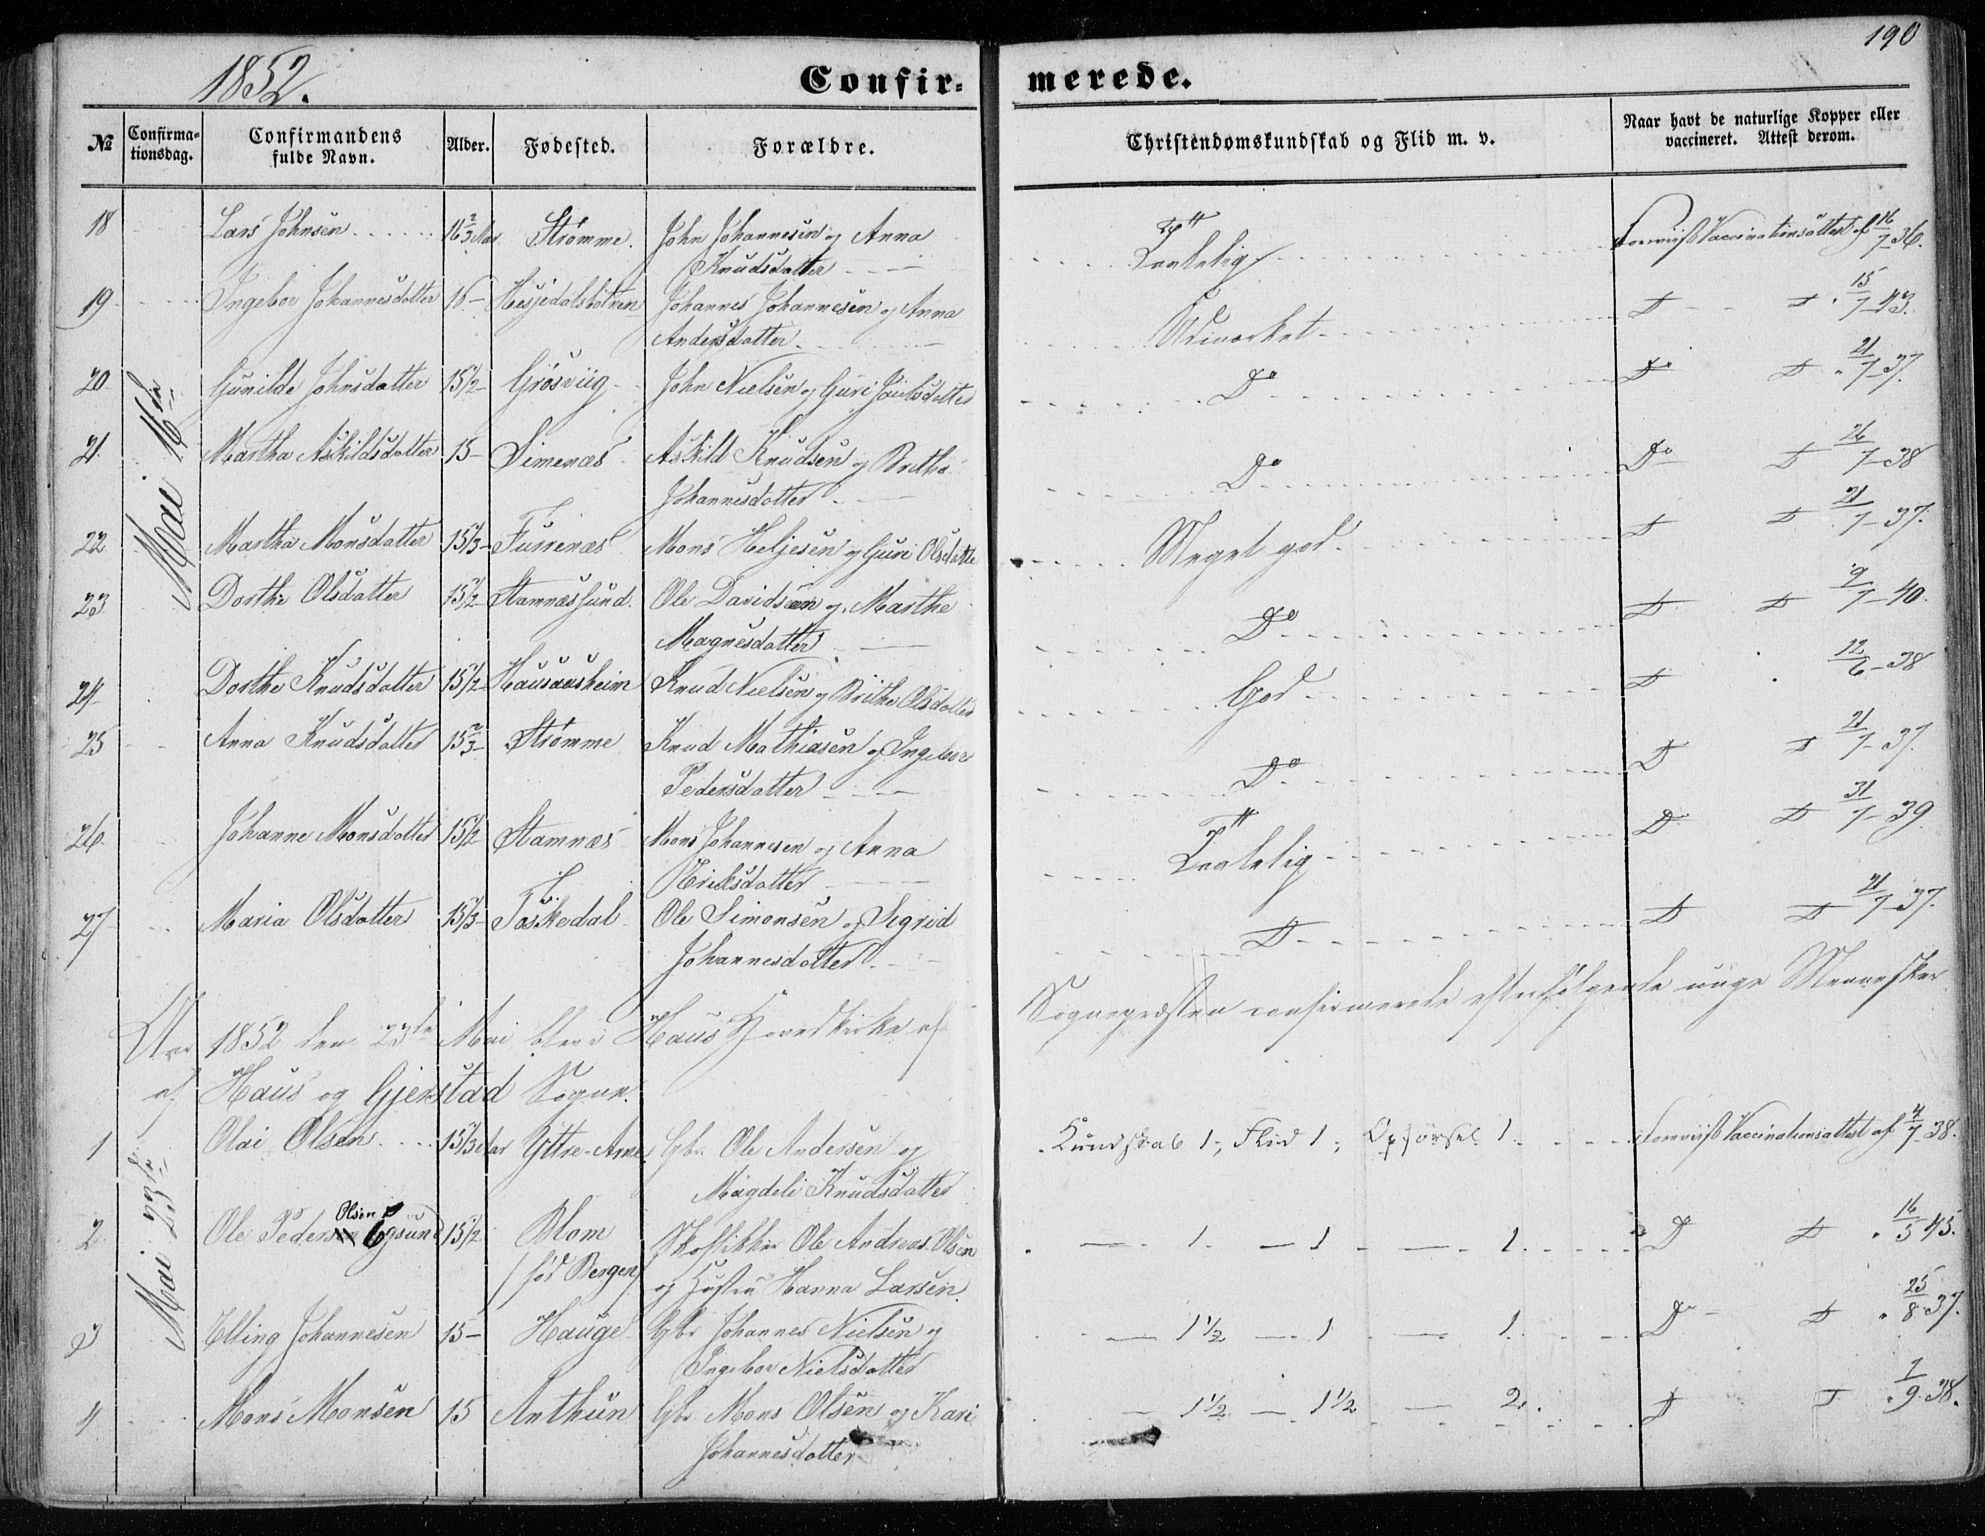 190
1852.
Confir- merede.
№ Confirma-tionsdag. Confirmandens fulde Navn. Alder. Fødested. Forældre. Christendomskundskab og Flid m. v. Naar havt de naturlige Kopper eller vaccineret. Attest derom.
Mai 16de
18 Lars Johnsen 16 2/3 Aar Strømme. John Johannesen og Anna Tællelig Foreviist Vaccinationsattest af 16/7 36.
Knudsdatter
19 Ingebor Johannesdatter 16 - Hesjedalsbotnen Johannes Johannesen og Anna Udmærket D D 15/7 43.
Andersdatter
20 Gunilde Johnsdatter 15 1/2 - Grøsviig John Nielsen og Guri Do Do D 21/7 37.
21. Martha Askildsdatter 15 - Simenæs Askild Knudsen og Britha Do Do D 26/7 - 38
Johannesdatter
22 Martha Monsdatter 15 1/3 - Furrenæs Mons Heljesen og Guri Olsdatte Meget god D D 21/7 - 37.
23 Dorthe Olsdatter 15 1/2 - Stamnæssund. Ole Davidsen og Marthe Do D D 9/7 - 40.
Magnesdatter
24 Dorthe Knudsdatter 15 1/2 - Hausausheim Knud Nielsen og Brithe Olsdatter God D 12/6 - 38
25 Anna Knudsdatter 15 2/3 - Strømme Knud Mathiasen og Ingebor Do D D 21/7 - 37.
Pedersdatter
26. Johanne Monsdatter 15 1/2 Stamnæs Mons Johannesen og Anna D D 31/7 - 39
Eriksdatter
27 Maria Olsdatter 15 1/3 - Toskedal Ole Simonsen og Sigrid D D D 21/7 - 37.
Johannesdatter
Aar 1852 den 23de Mai blev i Haus Hovedkirke af Sognepræsten confirmerede efterfølgende unge Mennesker
af Haus og Gjerstad Sogne.
Mai 23de
1 Olai Olsen 15 1/3 Aar Yttre-Arne Gbr. Ole Andersen og Kundskab 1, Flid 1, Opførsel 1 Foreviist Vaccinationsattest af 4/7 38.
Magdeli Knudsdatter
2. Ole Peder Olsen Egsund 15 1/2 Blom Ole Andreas Olsen - 1. - 1 - 1. D D 16/5 45.
(fød Bergen) og Hustru Hanna Larsen
3 Elling Johannesen 15 - Hauge Gbr Johannes Nielsen og - 1 1/2 - 1 - 1. Do D 25/8 37.
Ingebor Nielsdatter
4 Mons Monsen 15 Anthun Gbr Mons Olsen og Kari - 1 1/2 - 1 1/2 - 2. D D 7/9 38.
Johannesdatter